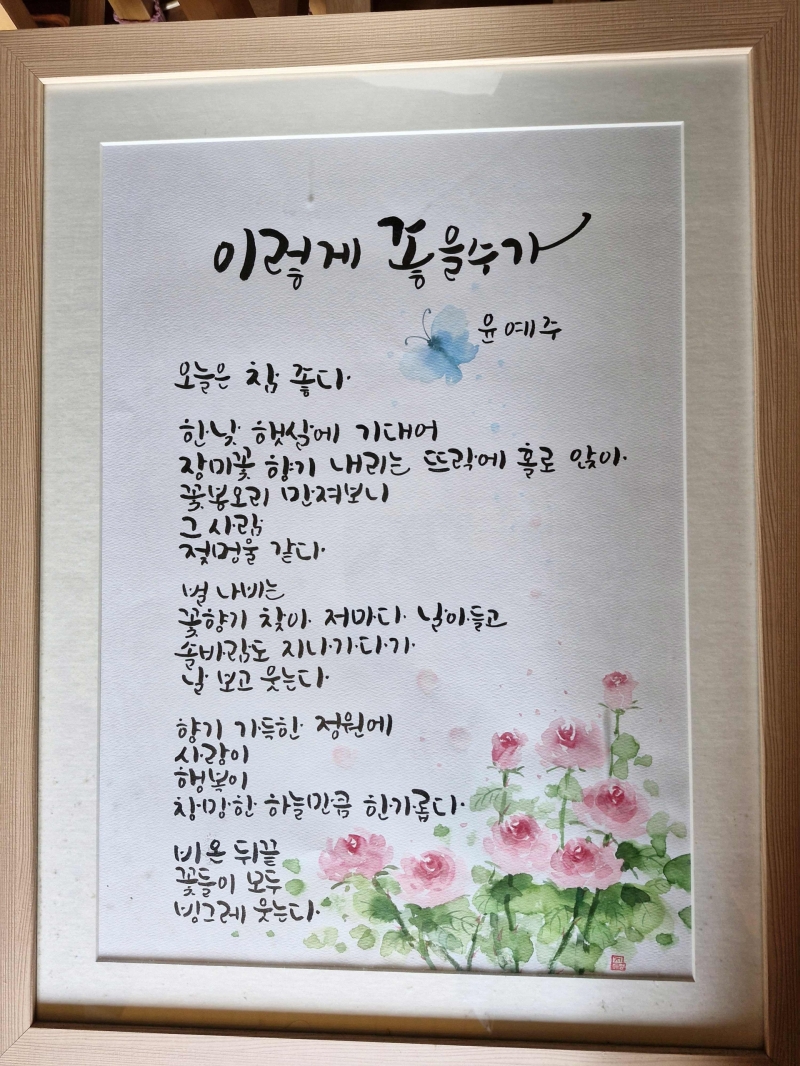 이렇게 좋을수가
윤예주
오늘은 참 좋다.
한낮 햇살에 기대어
장미꽃 향기 내리는 뜨락에 홀로 앉아.
꽃봉오리 만져보니
그 사람
젖멍울 같다.
벌 나비는
꽃향기 찾아 저마다 날아들고
솔바람도 지나가다가
날 보고 웃는다.
향기 가득한 정원에
사랑이
행복이
창망한 하늘만큼 한가롭다.
비온 뒤끝
꽃들이 모두
빙그레 웃는다.